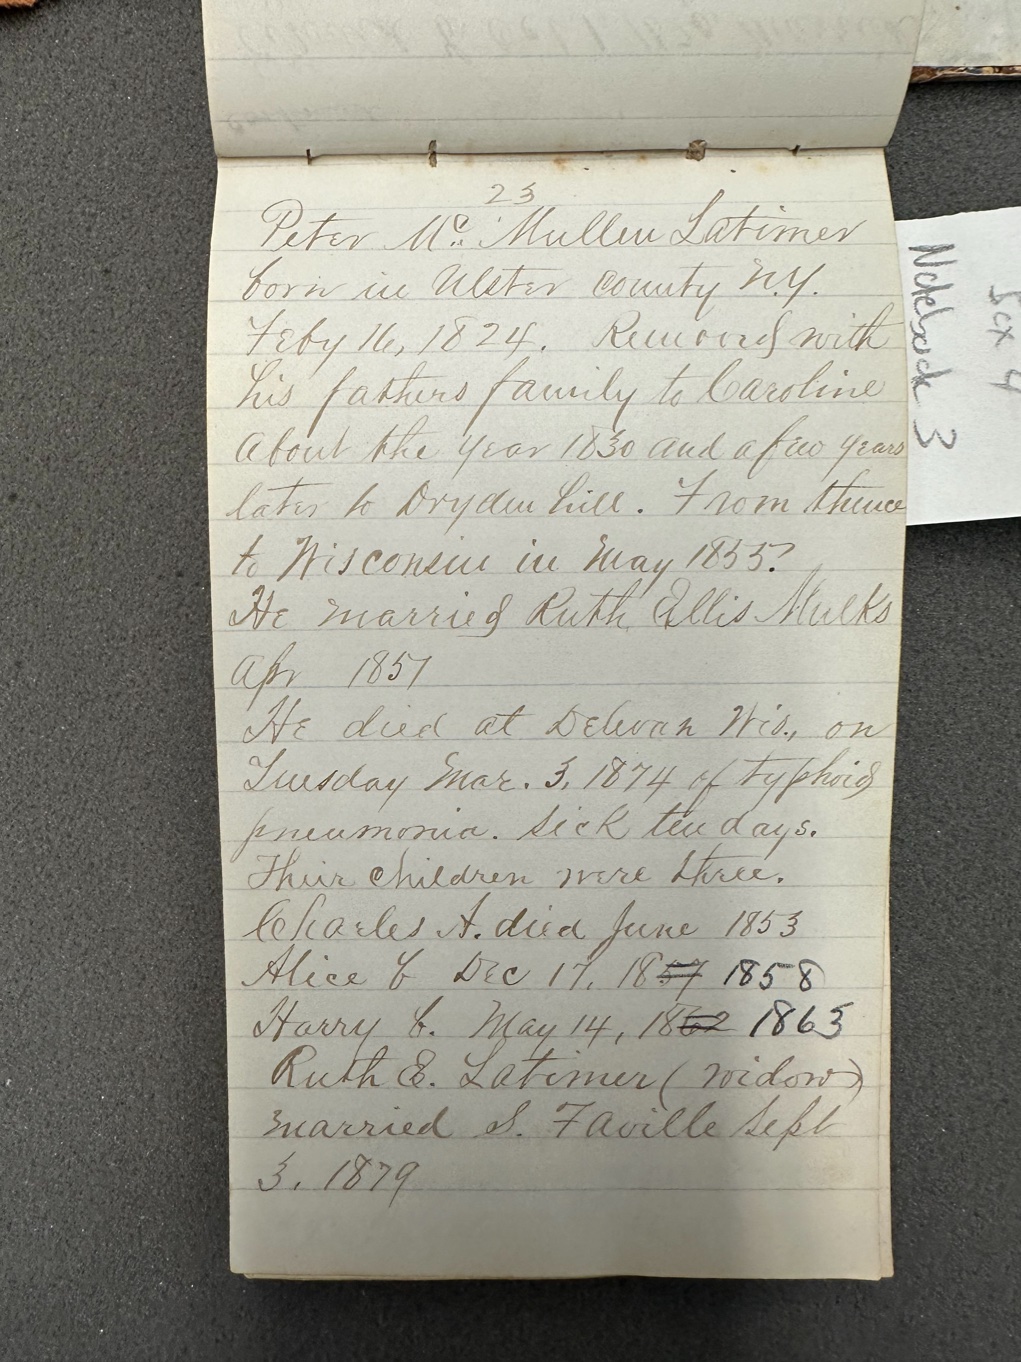 23
Peter Mc. Mullen Latimer
born in Ulster county N.Y.
Feby 16, 1824. Removed with
his fathers family to Caroline
about the year 1830 and a few years
later to Dryden hill. From thence
to Wisconsin in May 1855?
He married Ruth Ellis Mulks
Apr 1851
He died at Delevan Wis., on
Tuesday Mar. 3, 1874 of typhoid
pneumonia. Sick ten days.
Their children were three.
Charles A. died June 1853
Alice b Dec 17, 1857 1858
Harry b. May 14, 1862 1863
Ruth E. Latimer (widow)
married S. Faville Sept
3, 1879
Box 4
Notebook 3